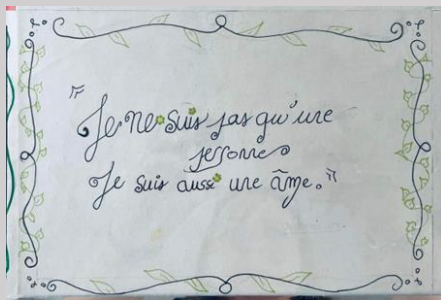 "Je ne suis pas qu'une
personne
Je suis aussi une âme."